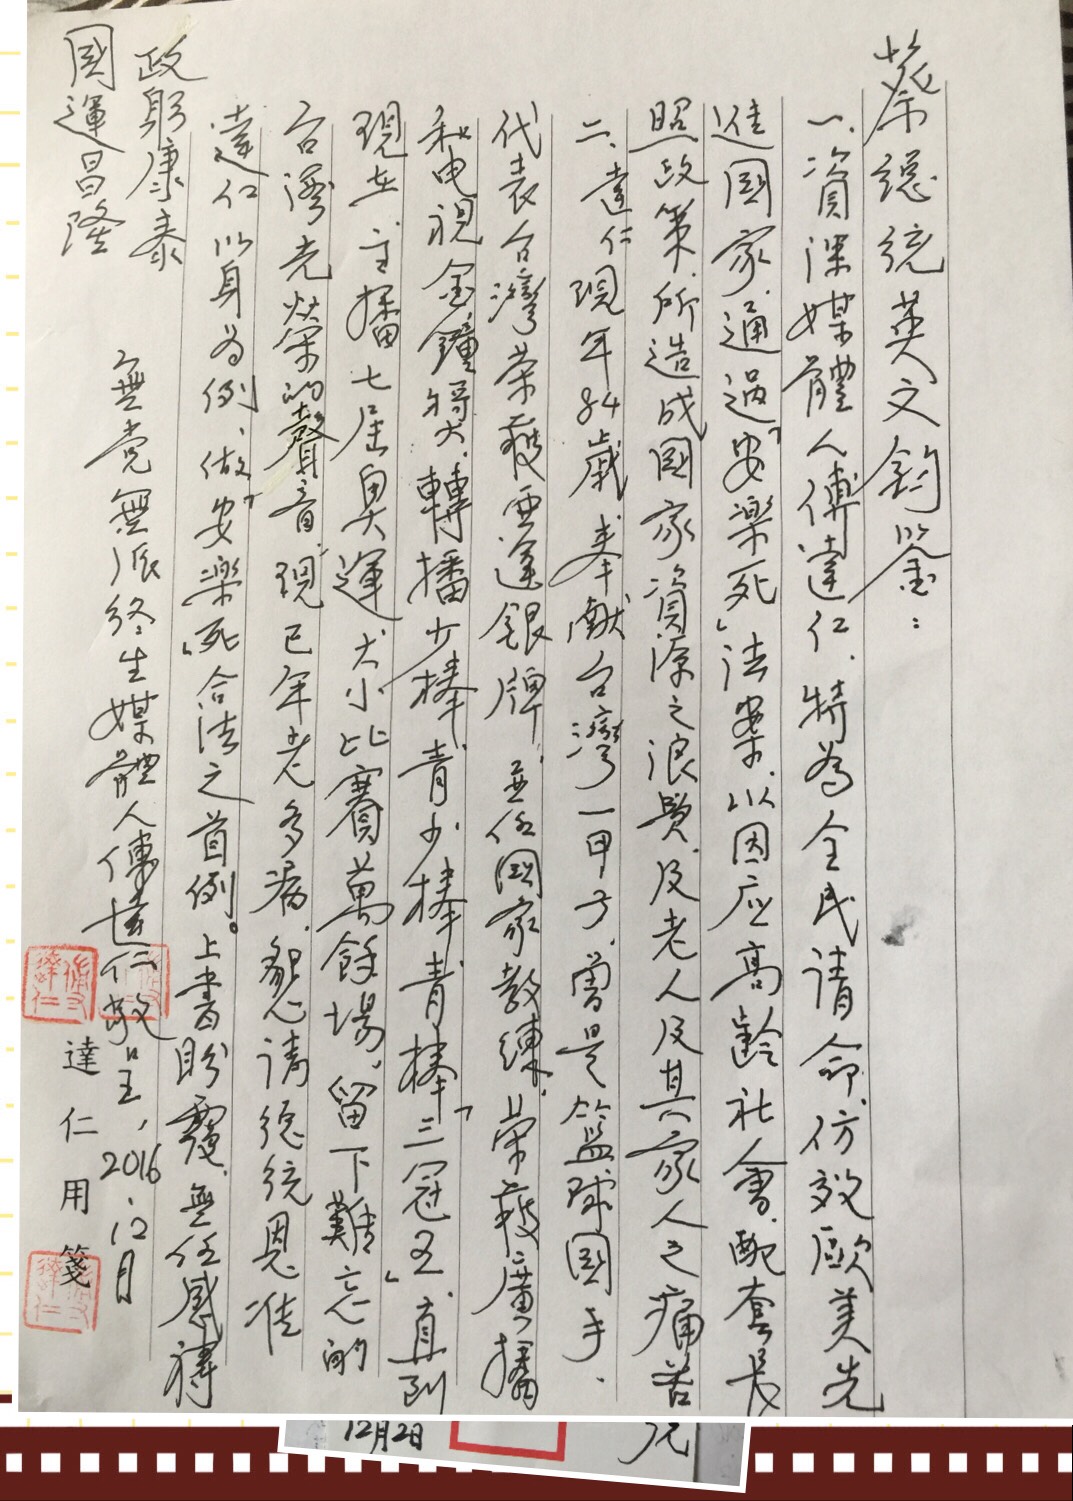 蔡總統英文鈞鑒：
一、資深媒體人傅達仁、特為全民請命、仿效歐美先
進國家、通過「安樂死」法案、以因应高齡社會、配套長
照政策、所造成國家資源之浪費、及老人及其家人之痛苦
二、達仁現年84歲、奉獻台灣一甲子、曾是籃球國手、
代表台灣榮獲亞運銀牌、並任國家教練、榮獲廣播
和电視金鐘獎、轉播少棒、青少棒、青棒「三冠王」直到
現在、主播七屆奧運大小比賽萬餘場、留下難忘的
台灣光榮的聲音、現已年老多病、懇請總統恩准
達仁以身為例、做「安樂死」合法之首例。上書盼覆、無任感禱
政躬康泰
國運昌隆
無党無派終生媒體人傅達仁敬呈、2016、12月
達仁用箋
12月2日
元